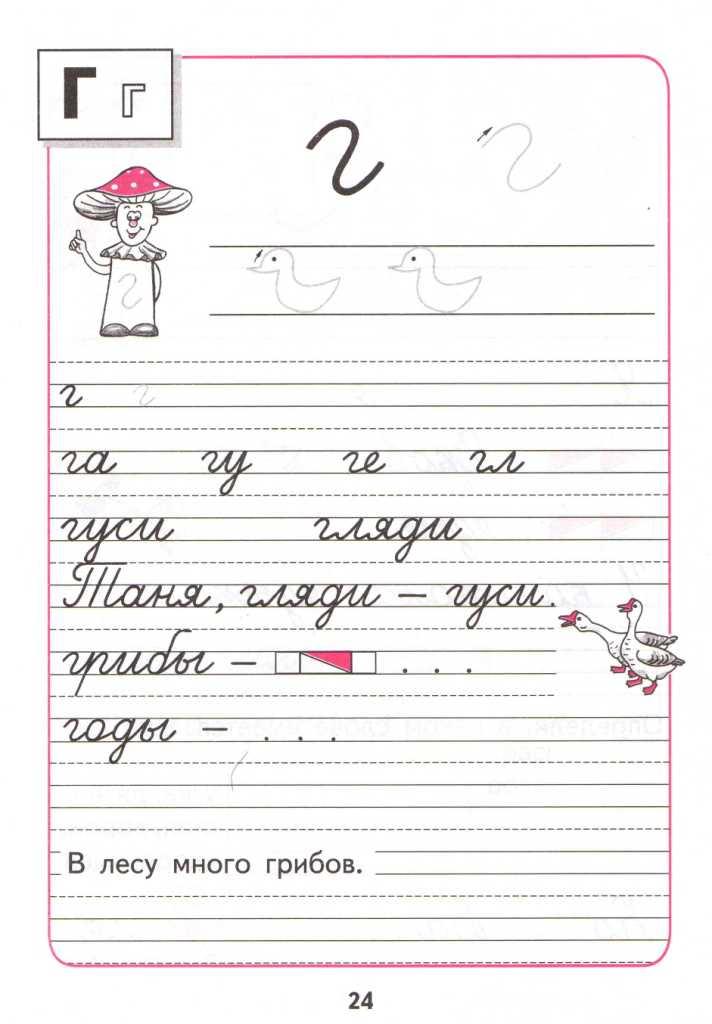 Г г
г г
г
г г
га гу ге гл
гуси гляди
Таня, гляди – гуси.
грибы – . . .
годы – . . .
В лесу много грибов.
24